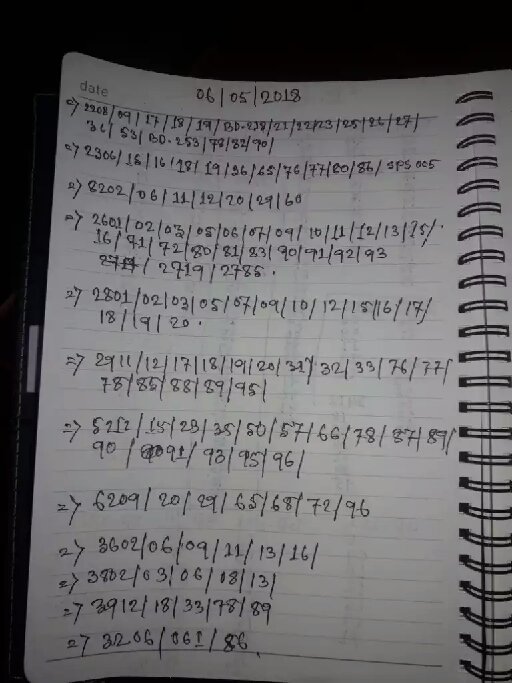 date 06/05/2018
=> 2208/09/17/18/19/BD-218/21/22/23/25/26/27/
31/53/BD-253/78/82/90/
=> 2306/15/16/18/19/36/65/76/77/80/86/SPS 005
=> 8202/06/11/12/20/29/60
=> 2601/02/03/05/06/07/09/10/11/12/13/15/
16/71/72/80/81/83/90/91/92/93
/2719/2785.
=> 2801/02/03/05/07/09/10/12/15/16/17/
18/19/20.
=> 2911/12/17/18/19/20/31/32/33/76/77/
78/85/88/89/95/
=> 5212/15/23/35/50/57/66/78/87/89/
90/91/93/95/96/
=> 6209/20/29/65/68/72/96
=> 3602/06/09/11/13/16/
=> 3802/03/06/08/13/
=> 3912/18/33/78/89
=> 3206/061/86.